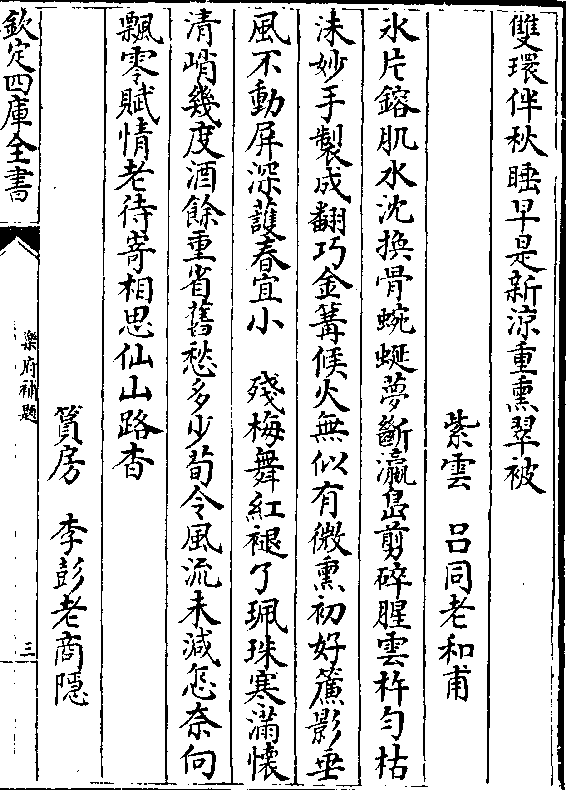 雙環伴秋睡早是新涼重熏翠被
紫雲　呂同老和甫
氷片鎔肌水沈換骨蜿蜒夢斷瀛島剪碎腥雲杵勻枯
沬妙手製成翻巧金篝候火無似有微熏初好簾影垂
風不動屏深護春宜小　殘梅舞紅褪了珮珠寒滿懐
清峭幾度酒餘重省舊愁多少荀令風流未減怎奈向
飄零賦情老待寄相思仙山路杳
篔房　李彭老商隱
欽定四庫全書
樂府補題
三